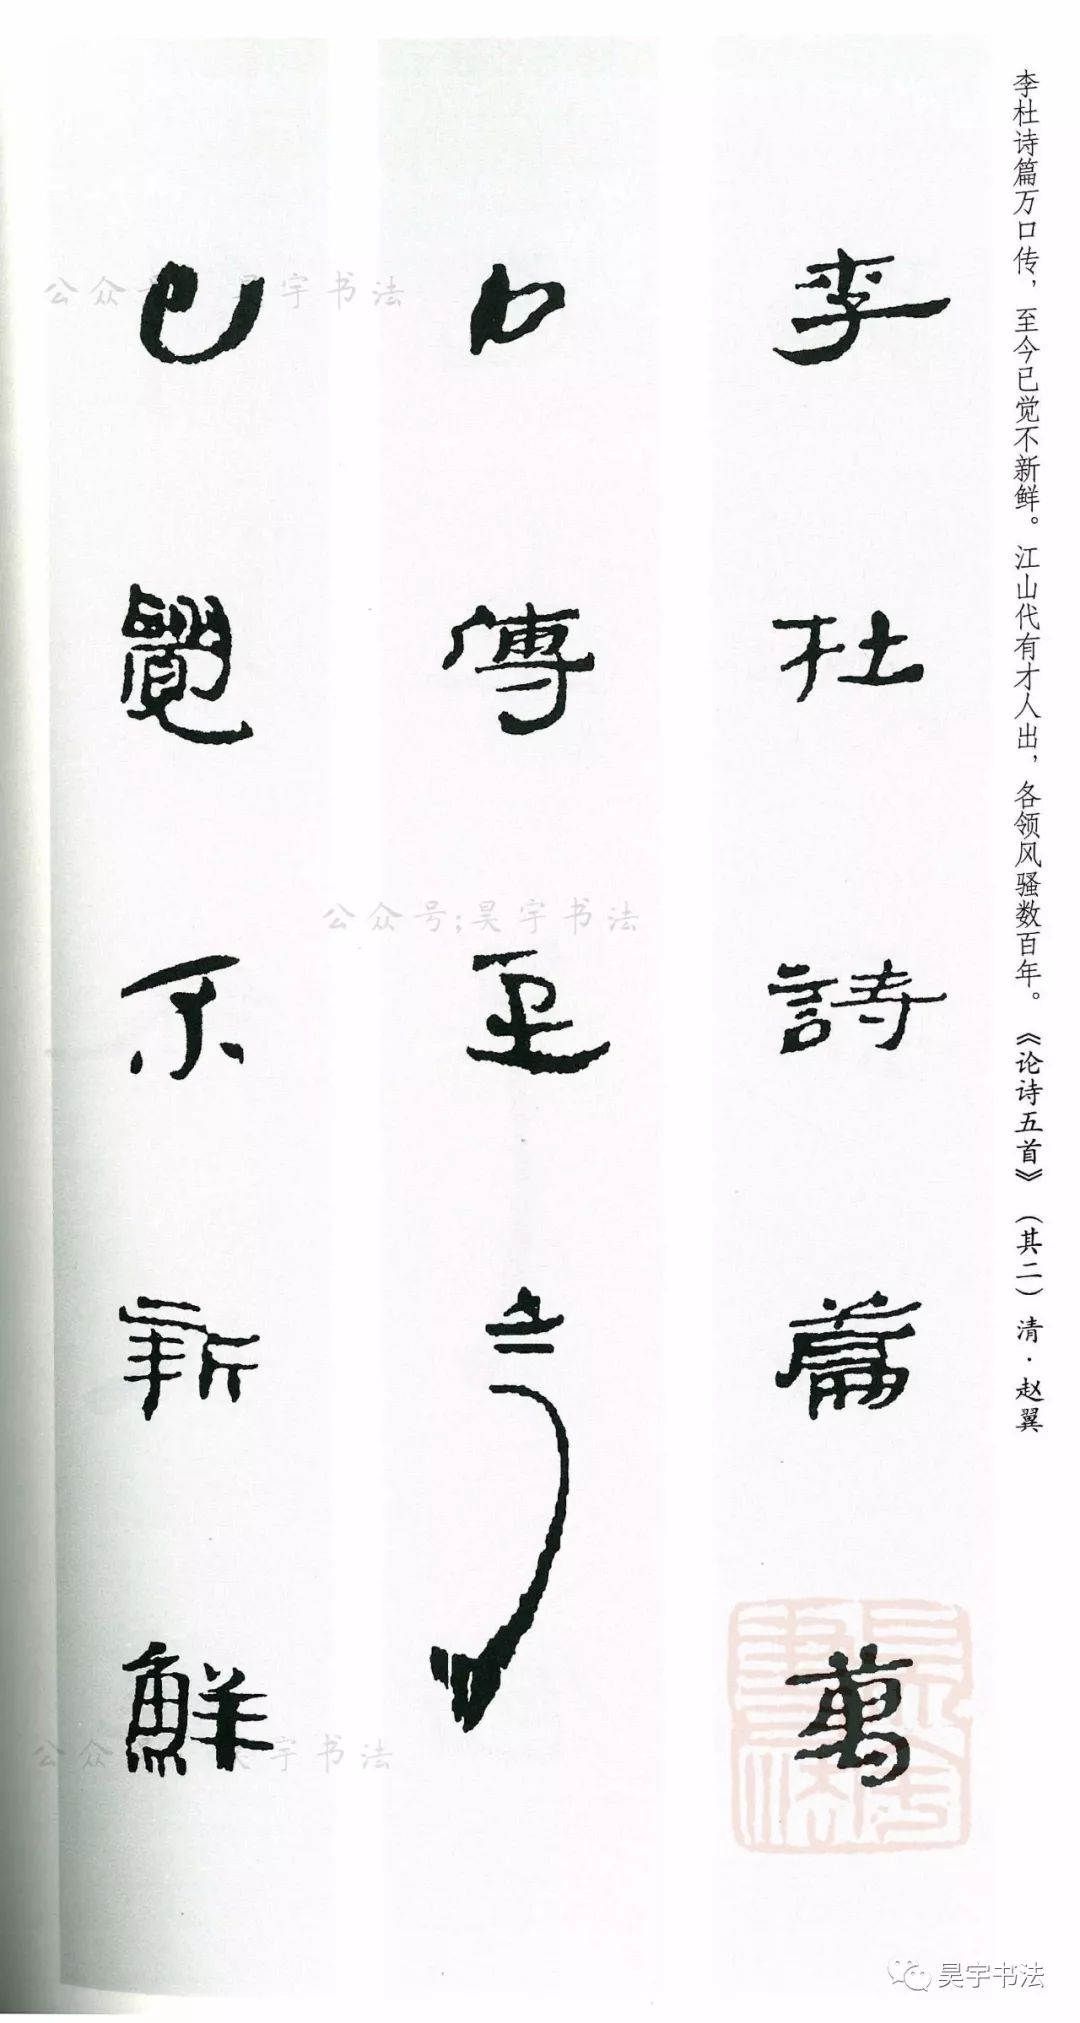 李杜诗篇万口传，至今已觉不新鲜。江山代有才人出，各领风骚数百年。《论诗五首》（其二）清·赵翼
李杜詩篇萬
口傳至今
已覺不新鮮
公众号 昊宇书法
公众号;昊宇书法
公众 昊宇书法
昊宇书法